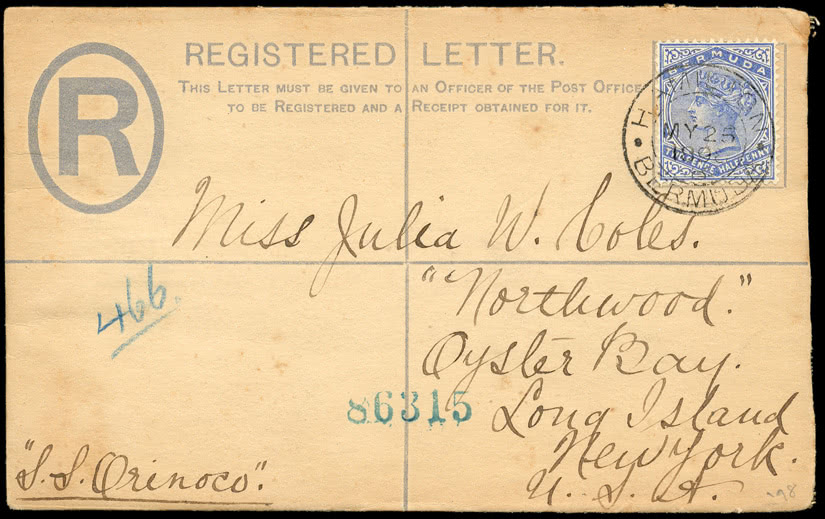 REGISTERED LETTER.
THIS LETTER MUST BE GIVEN TO AN OFFICER OF THE POST OFFICE
TO BE REGISTERED AND A RECEIPT OBTAINED FOR IT.
R
BERMUDA
TWOPENCE HALFPENNY
HAMILTON
MY 25
BERMUDA
Miss Julia W. Coles.
"Northwood."
Oyster Bay.
Long Island
New York.
U. S. A.
466.
86315
"S.S. Orinoco".
'98